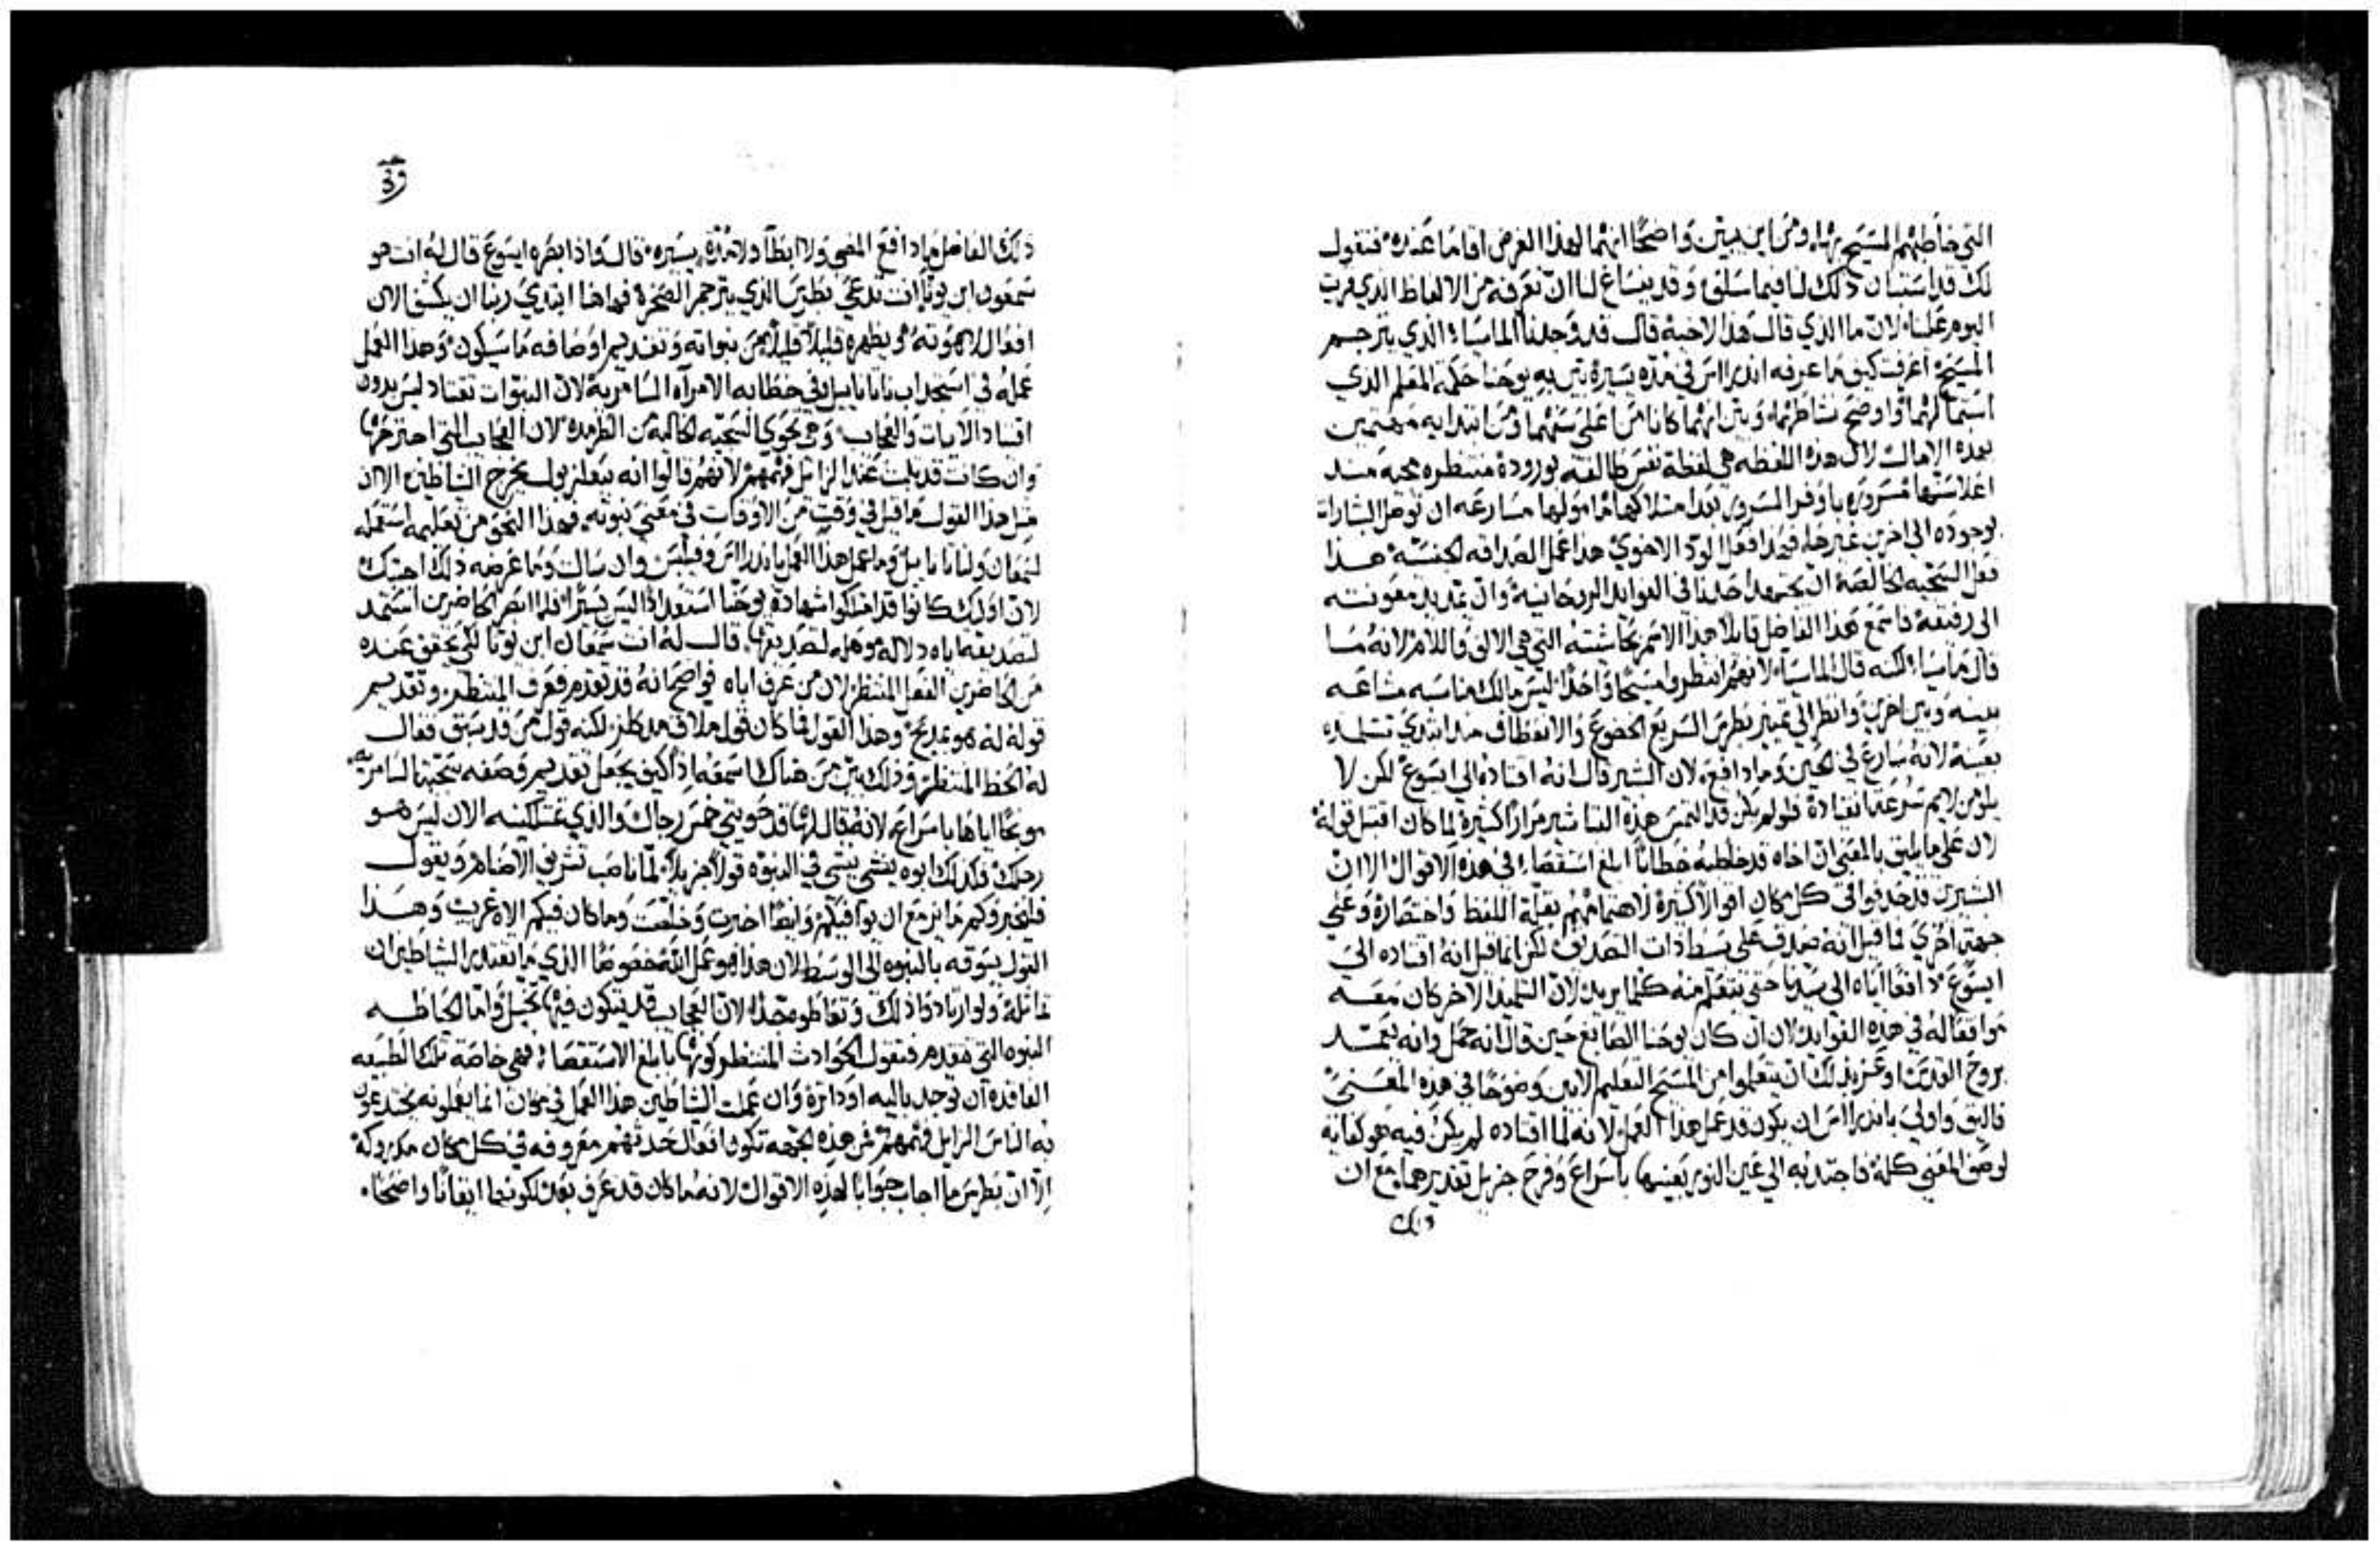 التي خاطبهم المسيح بها، ومن اين يبين واضحًا انهما لهذا الغرض اقاما عنده فنقول
لك قد استبان ذلك لنا فيما سلف وقد ينساغ لنا ان نعرفه من الالفاظ الذي قريت
اليوم علينا، لان ما الذي قال هذا لاخيه قال قد وجدنا الماسيا، الذي يترجم
المسيح، اعرفت كيف ما عرفه اندراس في مده يسيرة بين به يوحنا حكمة المعلم الذي
استمالهما واوضح نشاطهما، وبين انهما كانا من اعلى سنهما ومن ابتدايه مهتمين
بهذه الاعمال لان هذه اللفظه هي لفظة نفس طالقه بوروده منتظره مجيه منذ
اعلا سنها مسروره باوفر السرور بعد امتلاكها مامولها مسارعه ان توصل البشارات
بوجوده الى اخرين غيرها، فهذا فعل الود الاخوي هذا عمل الصداقه لجنسه هذا
فعل السجيه الخالصه ان يجتهد احدنا في الفوايد الروحانية وان يمد يد معونته
الى رفيقه فاسمع هذا الفاضل قايلا هذا الاسم بحاشيته التي هي الالف واللام لانه ما
قال ماسيا لكنه قال الماسيا، لانهم انتظروا مسيحًا واحدًا ليس مالك مناسبه مشاعه
بينه وبين اخرين وانظر الي تمييز بطرس السريع الخضوع والانعطاف منذ ابتدي تسلمه
بعينه لانه سارع في الحين وما دافع، لان البشير قال انه اقتاده الي ايسوع لكن لا
يلومن لايم سرعة انقيادة فلو لم يكن قد التمس هذه التباشير مرارًا كثيرة لما كان اقتبل قوله
لان على ما يليق بالمعنى ان اخاه قد خاطبه خطابًا ابلغ استقصاء في هذه الاقوال الا ان
البشيرين قد حذفوا في كل مكان اقوالاً كثيرة لاهتمامهم بقلة اللفظ واختصارة وعلي
جهة اخري فما قيل انه صدق على بسط ذات التصديق لكن انما قيل انه اقتاده الي
ايسوع دافعًا اياه الى سيدنا حتى يتعلم منه كلما يريد لان التلميذ الاخر كان معه
موافقًا له في هذه الفوايد، لان ان كان يوحنا الصابغ حين قال انه حمل وانه يعمد
بروح القدس اوعز بذلك ان يتعلموا من المسيح التعليم الابين وضوحًا في هذه المعنيَ
فاليق واولي باندراس ان يكون قد عمل هذا العمل لانه لما اقتاده لم يكن فيه هو كفاية
لوصف المعني كله فاجتذبه الي عين النور بعينها باسراع وفرح جزيل تقديرهما، مع ان
ذلك
ذلك الفاضل ما دافع المضي ولا ابطأ ولا مدة يسيره، قال واذ ابصره ايسوع قال له انت هو
شمعون ابن يونا انت تدعى بطرس الذي يترجم الصخرة فهاهنا ابتدي ربنا ان يكشف الان
افعال لاهوته ويظهره قليلاً قليلاً من نبواته وتقديم اوصافه ما سيكون، وهذا العمل
عمله في استجذاب ناثانابيل وفي خطابه الامراه السامرية لان النبوات تقتاد ليس بدون
اقتياد الايات والعجاب وهي تحوي السجيه الخاليه من الطرمذه لان العجايب التي اجترحها
وان كانت قد ثلبت عند الزايل فهمهم لانهم قالوا انه ببعلزبول يخرج الشياطين الا ان
مثل هذا القول ما قيل في وقت من الاوقات في معني نبوته، فهذا النحو من تعليمه استعمله
لسمعان ولناثانابيل وما عمل هذا العمل باندراس وفيلبس وان سالت وما غرضه ذلك اجبتك
لان اوليك كانوا قد امتلكوا شهادة يوحنا استعدادًا ليس يسيرًا، فلما ابصر الحاضرين استمد
لتصديقه اياه دلاله موهله لتصديقها، قال له انت سمعان ابن يونا لكي يحقق عنده
من الحاضرين الفعل المنتظر، لان من عرف اباه فواضح انه قد تقدم فعرف المنتظر، وتقديم
قوله له هو بمديح وهذا القول فما كان قول ملاق مدكلز لكنه قول من قد سبق فقال
له الحظ المنتظر، وذلك بين من هناك اسمعه اذًا كيف يجعل تقديم وصفه سجيتنا السامريه
موبخًا اياها باسراع، لانه قال لها قد حويتي خمس رجال والذي تمتلكينه الان ليس هو
رجلك فكذلك ابوه ينشي ينشي في النبوه قولاً جزيلاً، لما ناصب تشريف الاصنام ويقول
فليخبروكم ما يزمع ان يوافيكم وايضًا اخبرت وخلصت وما كان فيكم الاه غريب وهذا
القول يسوقه بالنبوه الى الوسط لان هذا هو عمل الله خصوصًا الذي ما يقتدر الشياطين ان
تماثله ولو ارتادوا ذلك وتعاطوه جدًا، لان العجايب قد يتكون فيها تخيل واما الحافظه
النبوه التي تتقدم فتقول الحوادث المنتظر كونها بابلغ الاستقصا، فهي خاصه تلك الطبيعه
الفاقده ان توجد باليه او داثرة وان عملت الشياطين هذا العمل في موان انما يعملونه يخدعون
به الناس الزايل فهمهم من هذه الجهه تكون افعال خديعتهم معروفه في كل مكان مدروكه
إلا ان بطرس ما اجاب جوابا لهذه الاقوال لانه ما كان قد عرف بعد كونها ايقانًا واضحًا.